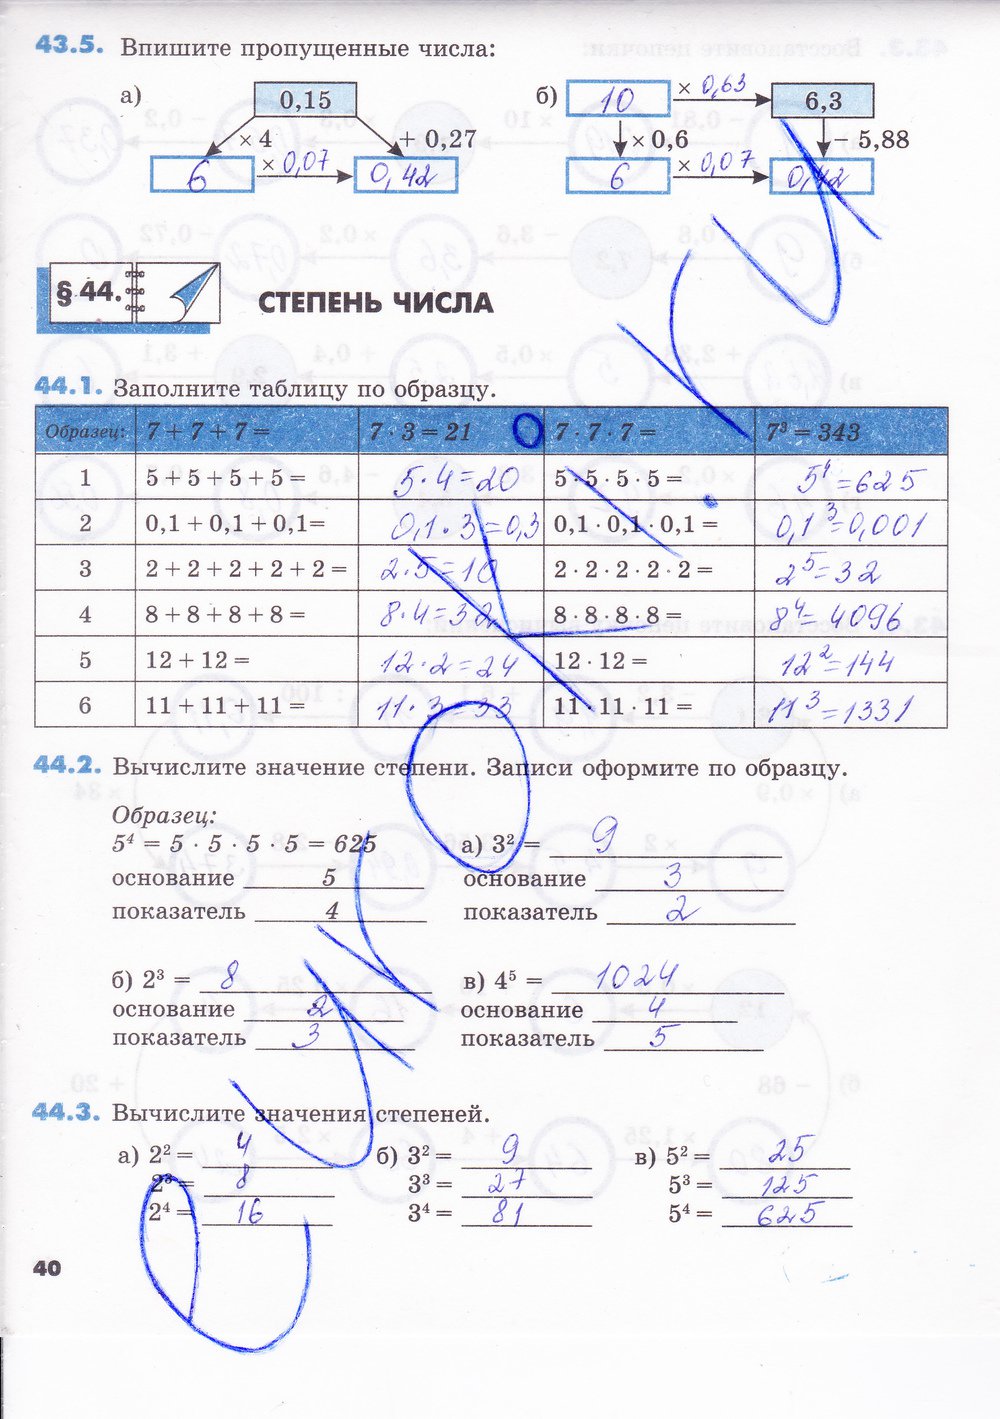 43.5. Впишите пропущенные числа:
а) 0,15
× 4
+ 0,27
6 × 0,07 0,42
б) 10 × 0,63 6,3
× 0,6
− 5,88
6 × 0,07 0,42
§ 44. СТЕПЕНЬ ЧИСЛА
44.1. Заполните таблицу по образцу.
Образец: 7 + 7 + 7 = 7 · 3 = 21 7 · 7 · 7 = 7³ = 343
1 5 + 5 + 5 + 5 = 5·4=20 5 · 5 · 5 · 5 = 5⁴=625
2 0,1 + 0,1 + 0,1= 0,1·3=0,3 0,1 · 0,1 · 0,1 = 0,1³=0,001
3 2 + 2 + 2 + 2 + 2 = 2·5=10 2 · 2 · 2 · 2 · 2 = 2⁵=32
4 8 + 8 + 8 + 8 = 8·4=32 8 · 8 · 8 · 8 = 8⁴=4096
5 12 + 12 = 12·2=24 12 · 12 = 12²=144
6 11 + 11 + 11 = 11·3=33 11 · 11 · 11 = 11³=1331
44.2. Вычислите значение степени. Записи оформите по образцу.
Образец:
5⁴ = 5 · 5 · 5 · 5 = 625 а) 3² = 9
основание 5 основание 3
показатель 4 показатель 2
б) 2³ = 8 в) 4⁵ = 1024
основание 2 основание 4
показатель 3 показатель 5
44.3. Вычислите значения степеней.
а) 2² = 4 б) 3² = 9 в) 5² = 25
2³ = 8 3³ = 27 5³ = 125
2⁴ = 16 3⁴ = 81 5⁴ = 625
40
euroki.ru